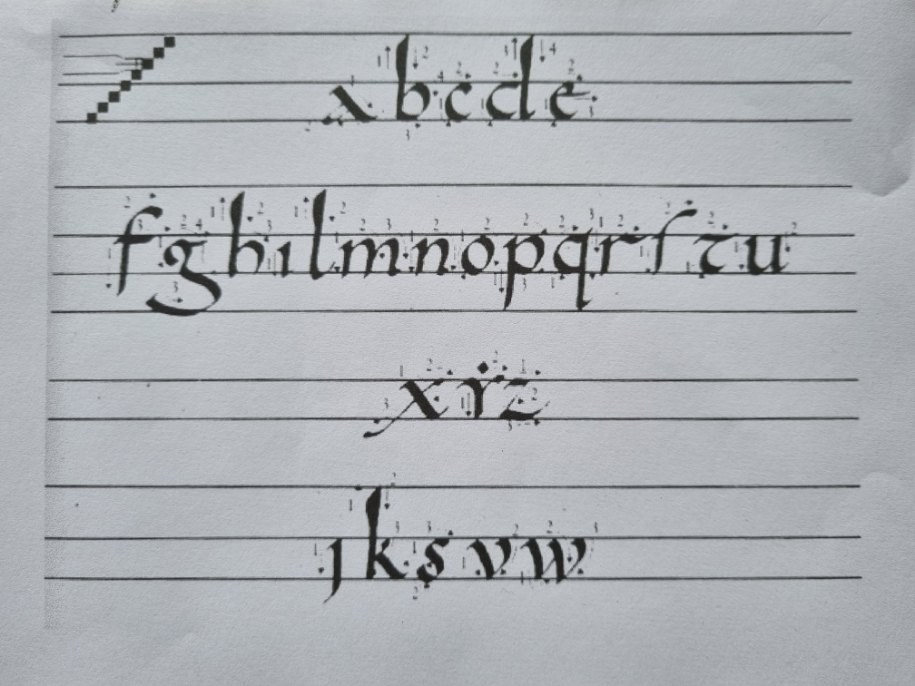 a b c d e
f g h i l m n o p q r ſ t u
x y z
j k s v w